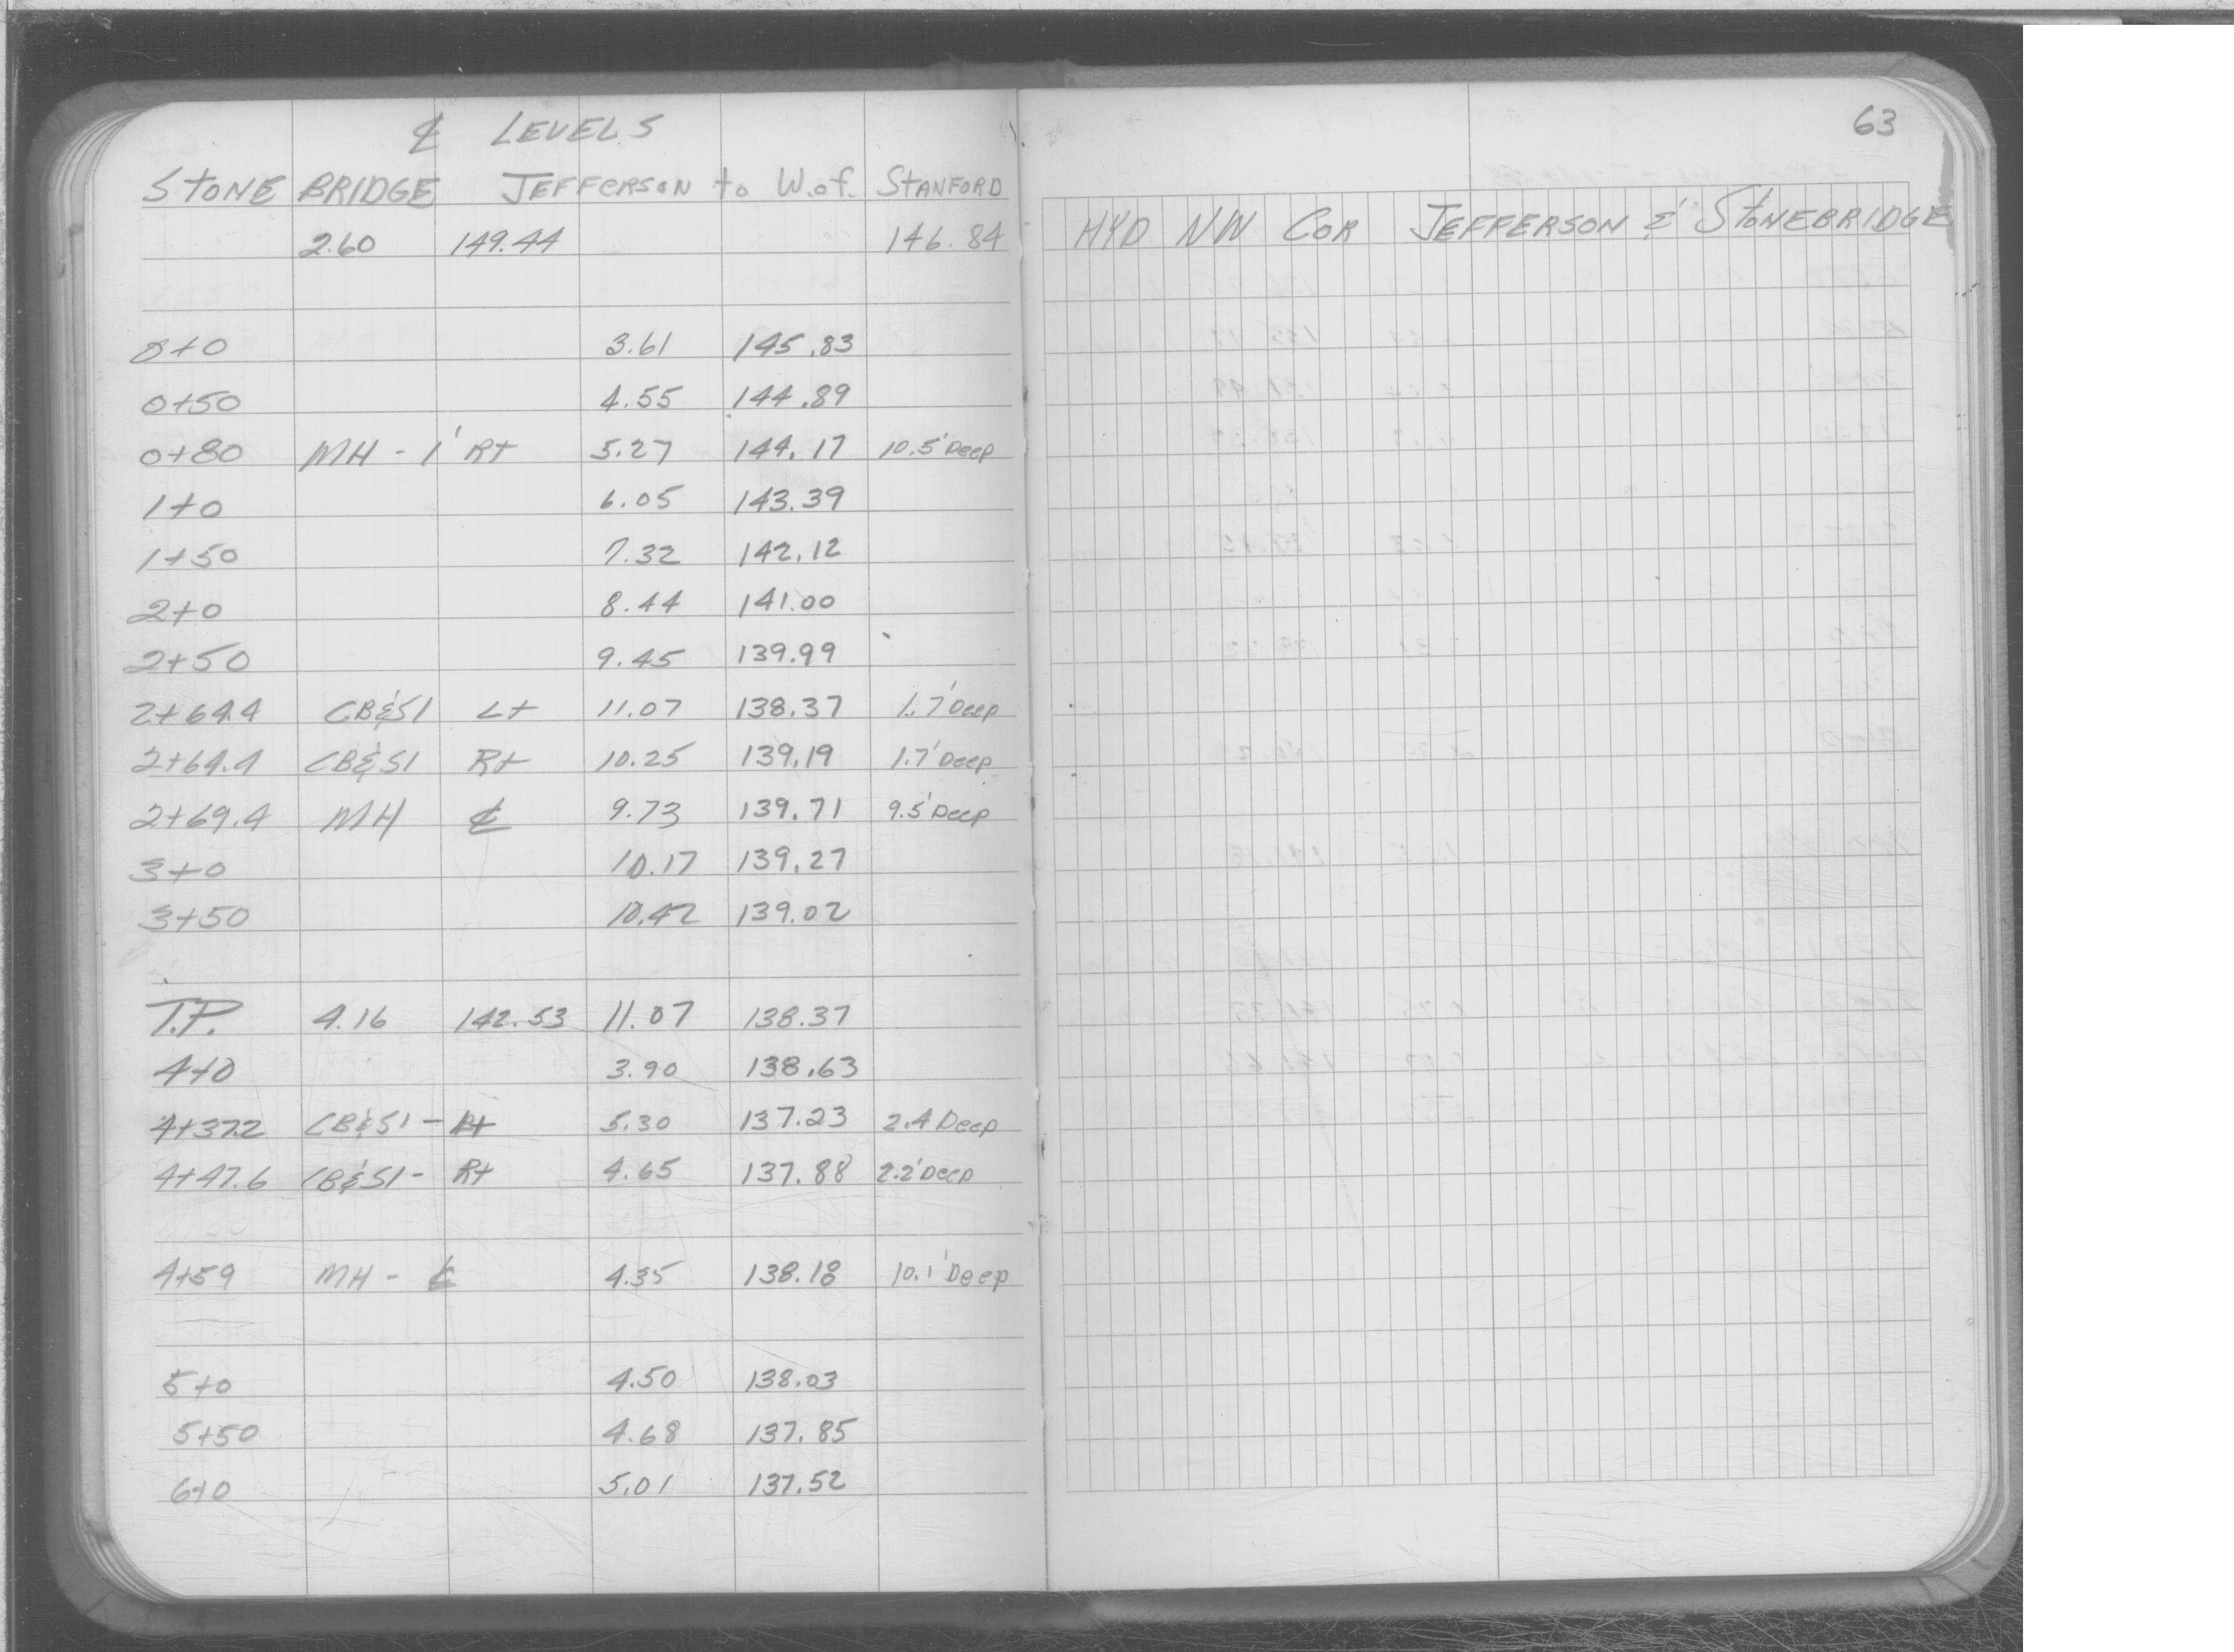 ℄ LEVELS
STONE BRIDGE JEFFERSON to W.of. STANFORD
2.60 149.44 146.84
0+0 3.61 145.83
0+50 4.55 144.89
0+80 MH - 1' Rt 5.27 144.17 10.5' Deep
1+0 6.05 143.39
1+50 7.32 142.12
2+0 8.44 141.00
2+50 9.45 139.99
2+64.4 CB&SI Lt 11.07 138.37 1.7' Deep
2+64.4 CB&SI Rt 10.25 139.19 1.7' Deep
2+69.4 MH ℄ 9.73 139.71 9.5' Deep
3+0 10.17 139.27
3+50 10.42 139.02
T.P. 4.16 142.53 11.07 138.37
4+0 3.90 138.63
4+37.2 CB&SI - 5.30 137.23 2.4 Deep
4+47.6 CB&SI - Rt 4.65 137.88 2.2' Deep
4+59 MH - ℄ 4.35 138.18 10.1' Deep
5+0 4.50 138.03
5+50 4.68 137.85
6+0 5.01 137.52
63
HYD NW COR JEFFERSON & STONEBRIDGE